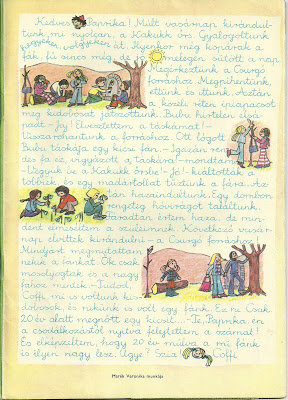 Kedves Paprika! Múlt vasárnap kirándul-
tunk, mi nyolcan, a Kakukk őrs. Gyalogoltunk
hegyeken, völgyeken át. Ilyenkor még kopárak a
fák, fű sincs még, de jó melegen sütött a nap.
Megérkeztünk a Csurgó
forráshoz. Megpihentünk,
ettünk és ittunk. Aztán
a közeli réten ipiapacsot
meg kidobósat játszottunk. Bubu hirtelen elsá-
padt. - Jaj! Elvesztettem a táskámat! -
Visszarohantunk a forráshoz. Ott lógott
Bubu táskája egy kicsi fán. - Igazán ren-
des fa ez, vigyázott a táskára! - mondtam.
- Vegyük be a Kakukk őrsbe! - Jó! - kiáltották a
többiek és egy madártollat tűztünk a fára. Az-
tán hazaindultunk. Egy dombon
rengeteg hóvirágot találtunk.
Fáradtan értem haza, de min-
dent elmeséltem a szüleimnek. Következő vasár-
nap elvittek kirándulni - a Csurgó forráshoz.
Mindjárt megmutattam
nekik a fánkat. Ők csak
mosolyogtak és a nagy
fához mentek. - Tudod,
Coffi, mi is voltunk kis-
dobosok, és nekünk is volt egy fánk. Ez ni! Csak
20 év alatt megnőtt egy kicsit... - Te, Paprika, én
a csodálkozástól nyitva felejtettem a számat!
És elképzeltem, hogy 20 év múlva a mi fánk
is ilyen nagy lesz. Ugye? Szia! Coffi
Marék Veronika munkája